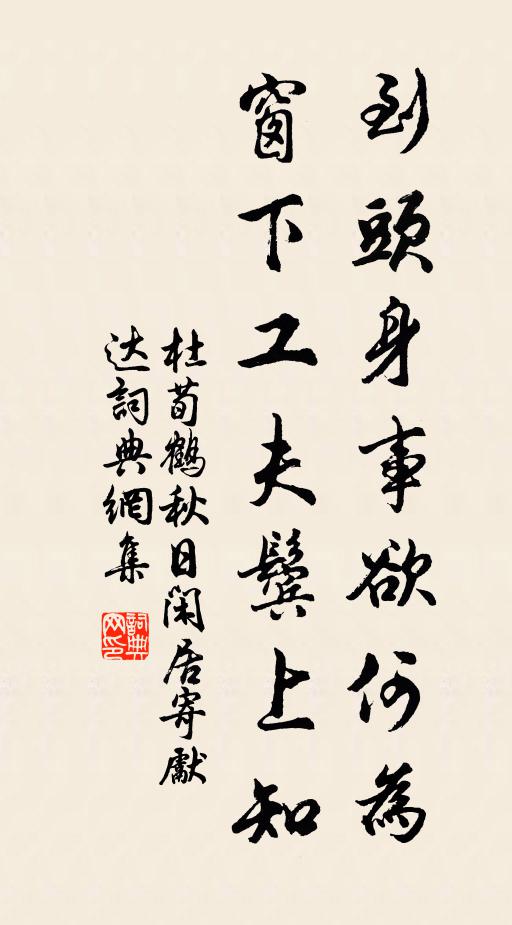 到頭身事欲何為
窗下工夫鬢上知
杜荀鶴秋日閑居寄獻
达詞典網集
詞典
网印